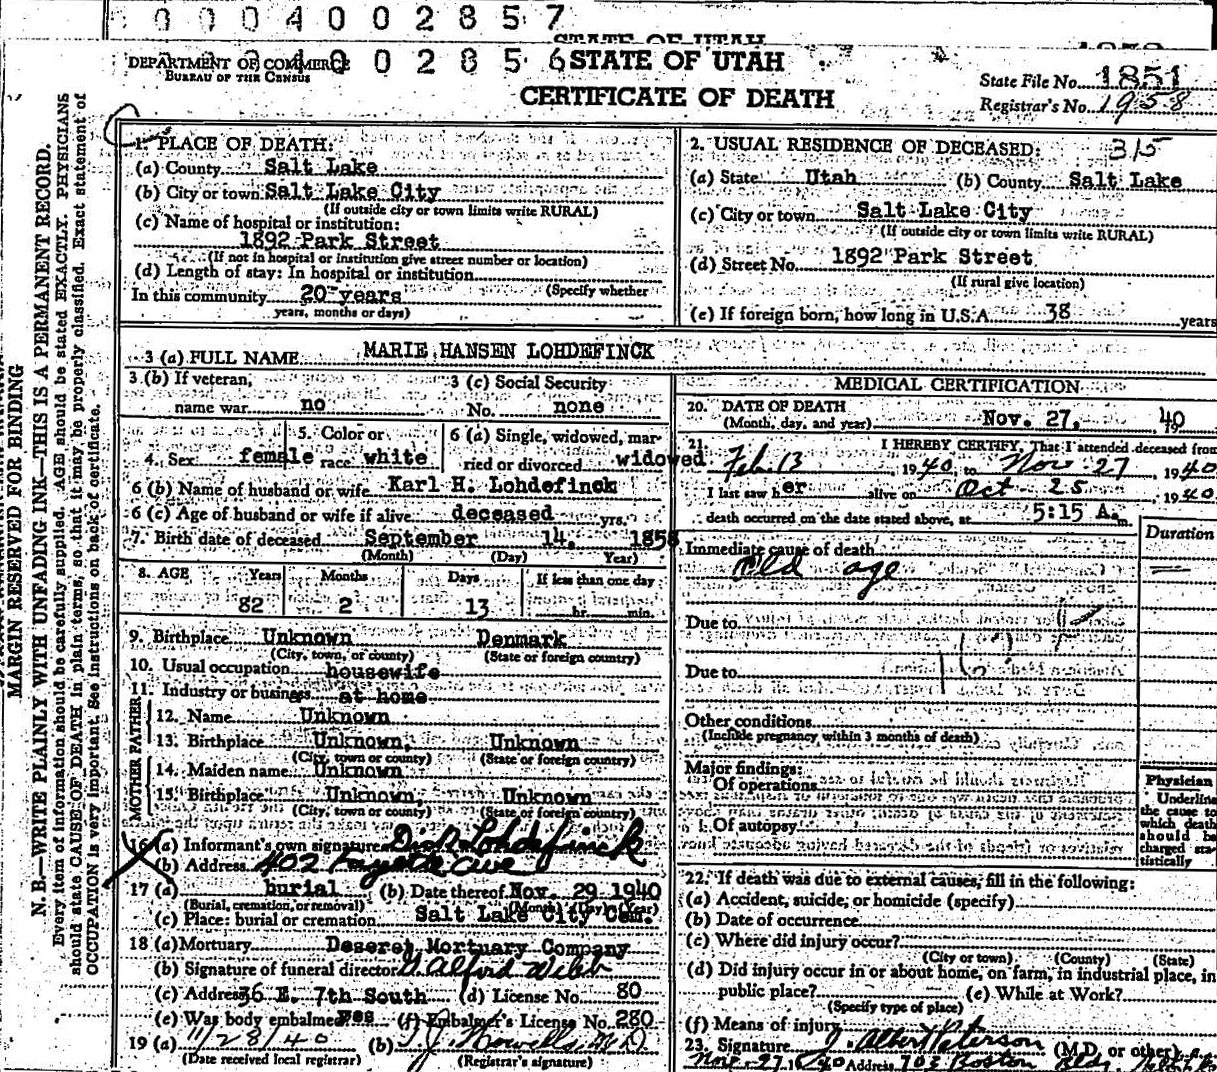 0 0 0 4 0 0 2 8 5 7
STATE OF UTAH
DEPARTMENT OF COMMERCE
BUREAU OF THE CENSUS
0 0 2 8 5 6
STATE OF UTAH
CERTIFICATE OF DEATH
State File No. 1851
Registrar's No. 1958
MARGIN RESERVED FOR BINDING
N. B.—WRITE PLAINLY WITH UNFADING INK—THIS IS A PERMANENT RECORD.
Every item of information should be carefully supplied. AGE should be stated EXACTLY. PHYSICIANS
should state CAUSE OF DEATH in plain terms, so that it may be properly classified. Exact statement of
OCCUPATION is very important. See instructions on back of certificate.
1. PLACE OF DEATH:
(a) County Salt Lake
(b) City or town Salt Lake City
(If outside city or town limits write RURAL)
(c) Name of hospital or institution:
1892 Park Street
(If not in hospital or institution give street number or location)
(d) Length of stay: In hospital or institution
(Specify whether
In this community 20 years
years, months or days)
2. USUAL RESIDENCE OF DECEASED: 315
(a) State Utah (b) County Salt Lake
(c) City or town Salt Lake City
(If outside city or town limits write RURAL)
(d) Street No. 1892 Park Street
(If rural give location)
(e) If foreign born, how long in U.S.A. 38 years
3 (a) FULL NAME MARIE HANSEN LOHDEFINCK
3 (b) If veteran, 3 (c) Social Security
name war no No. none
5. Color or 6 (a) Single, widowed, mar-
4. Sex female race white ried or divorced widowed
6 (b) Name of husband or wife Karl H. Lohdefinck
6 (c) Age of husband or wife if alive deceased yrs.
7. Birth date of deceased September 14, 1858
(Month) (Day) Year)
8. AGE Years Months Days If less than one day
82 2 13 hr. min.
9. Birthplace Unknown Denmark
(City, town, or county) (State or foreign country)
10. Usual occupation housewife
11. Industry or business at home
FATHER
12. Name Unknown
13. Birthplace Unknown, Unknown
(City, town or county) (State or foreign country)
MOTHER
14. Maiden name Unknown
15. Birthplace Unknown, Unknown
(City, town or county) (State or foreign country)
16 (a) Informant's own signature Lohdefinck
(b) Address 402 Fayette Ave
17 (a) burial (b) Date thereof Nov. 29 1940
(Burial, cremation, or removal) (Month) (Day) (Year)
(c) Place: burial or cremation Salt Lake City Cem.
18 (a) Mortuary Deseret Mortuary Company
(b) Signature of funeral director Alford Webb
(c) Address 36 E. 7th South (d) License No. 80
(e) Was body embalmed Yes (f) Embalmer's License No. 280
19 (a) 11/28/40 (b) M.D.
(Date received local registrar) (Registrar's signature)
MEDICAL CERTIFICATION
20. DATE OF DEATH
(Month, day, and year) Nov. 27, 40
21. I HEREBY CERTIFY, That I attended deceased from
Feb 13, 1940, to Nov 27, 1940
I last saw her alive on Oct 25, 1940
death occurred on the date stated above, at 5:15 A. m.
Duration
Immediate cause of death
Old age
Due to
Due to
Other conditions
(Include pregnancy within 3 months of death)
Major findings:
Of operations
Of autopsy
Physician
Underline
the cause to
which death
should be
charged sta-
tistically
22. If death was due to external causes, fill in the following:
(a) Accident, suicide, or homicide (specify)
(b) Date of occurrence
(c) Where did injury occur?
(City or town) (County) (State)
(d) Did injury occur in or about home, on farm, in industrial place, in
public place? (e) While at Work?
(Specify type of place)
(f) Means of injury
23. Signature J. Albert Peterson (M.D. or other)
Nov-27-1940 Address 703 Boston Bldg.